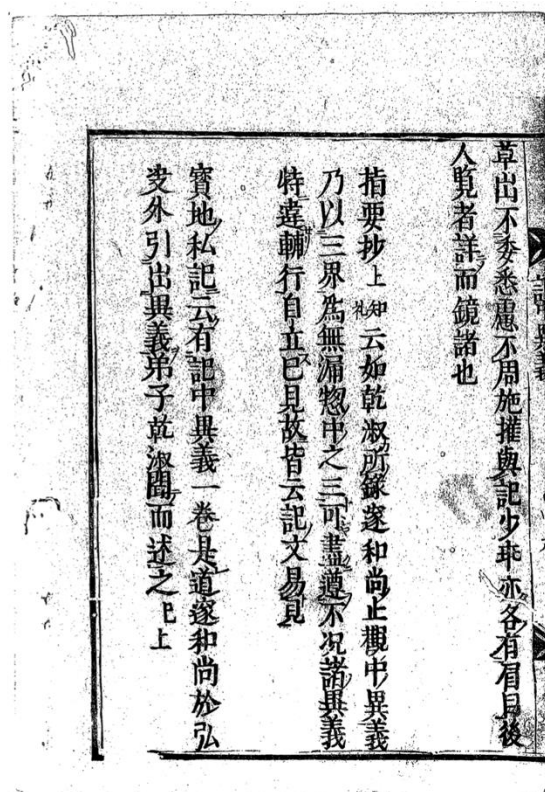 草出不委悉慮不周施摧與記少耳亦各有眉目後
人覧者詳而鏡諸也
指要抄上知礼云如乾淑所錄邃和尚止觀中異義
乃以三界爲無漏惣中之三可盡遵不况諸異義
特違輔行自立已見故皆云記文易見
寳地私記云有記中異義一卷是道邃和尚於弘
决外引出異義弟子乾淑聞而述之已上